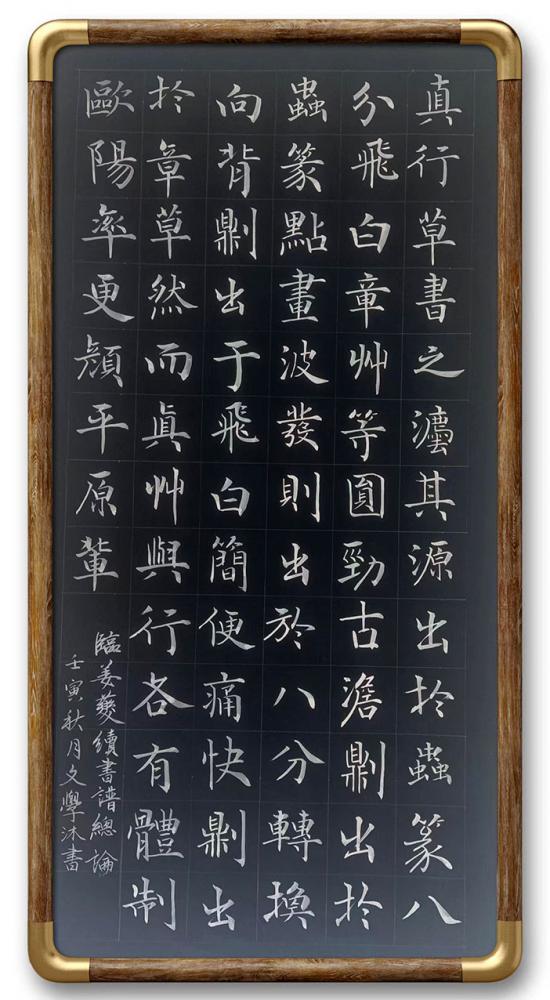 真行草書之灋其源出扵蟲篆八
分飛白章艸等圓勁古澹𠟭出扵
蟲篆點畫波發則出於八分轉換
向背𠟭出于飛白簡便痛快𠟭出
扵章草然而眞艸與行各有體制
歐陽率更顏平原輩
臨姜夔續書譜總論
壬寅秋月文學沐書